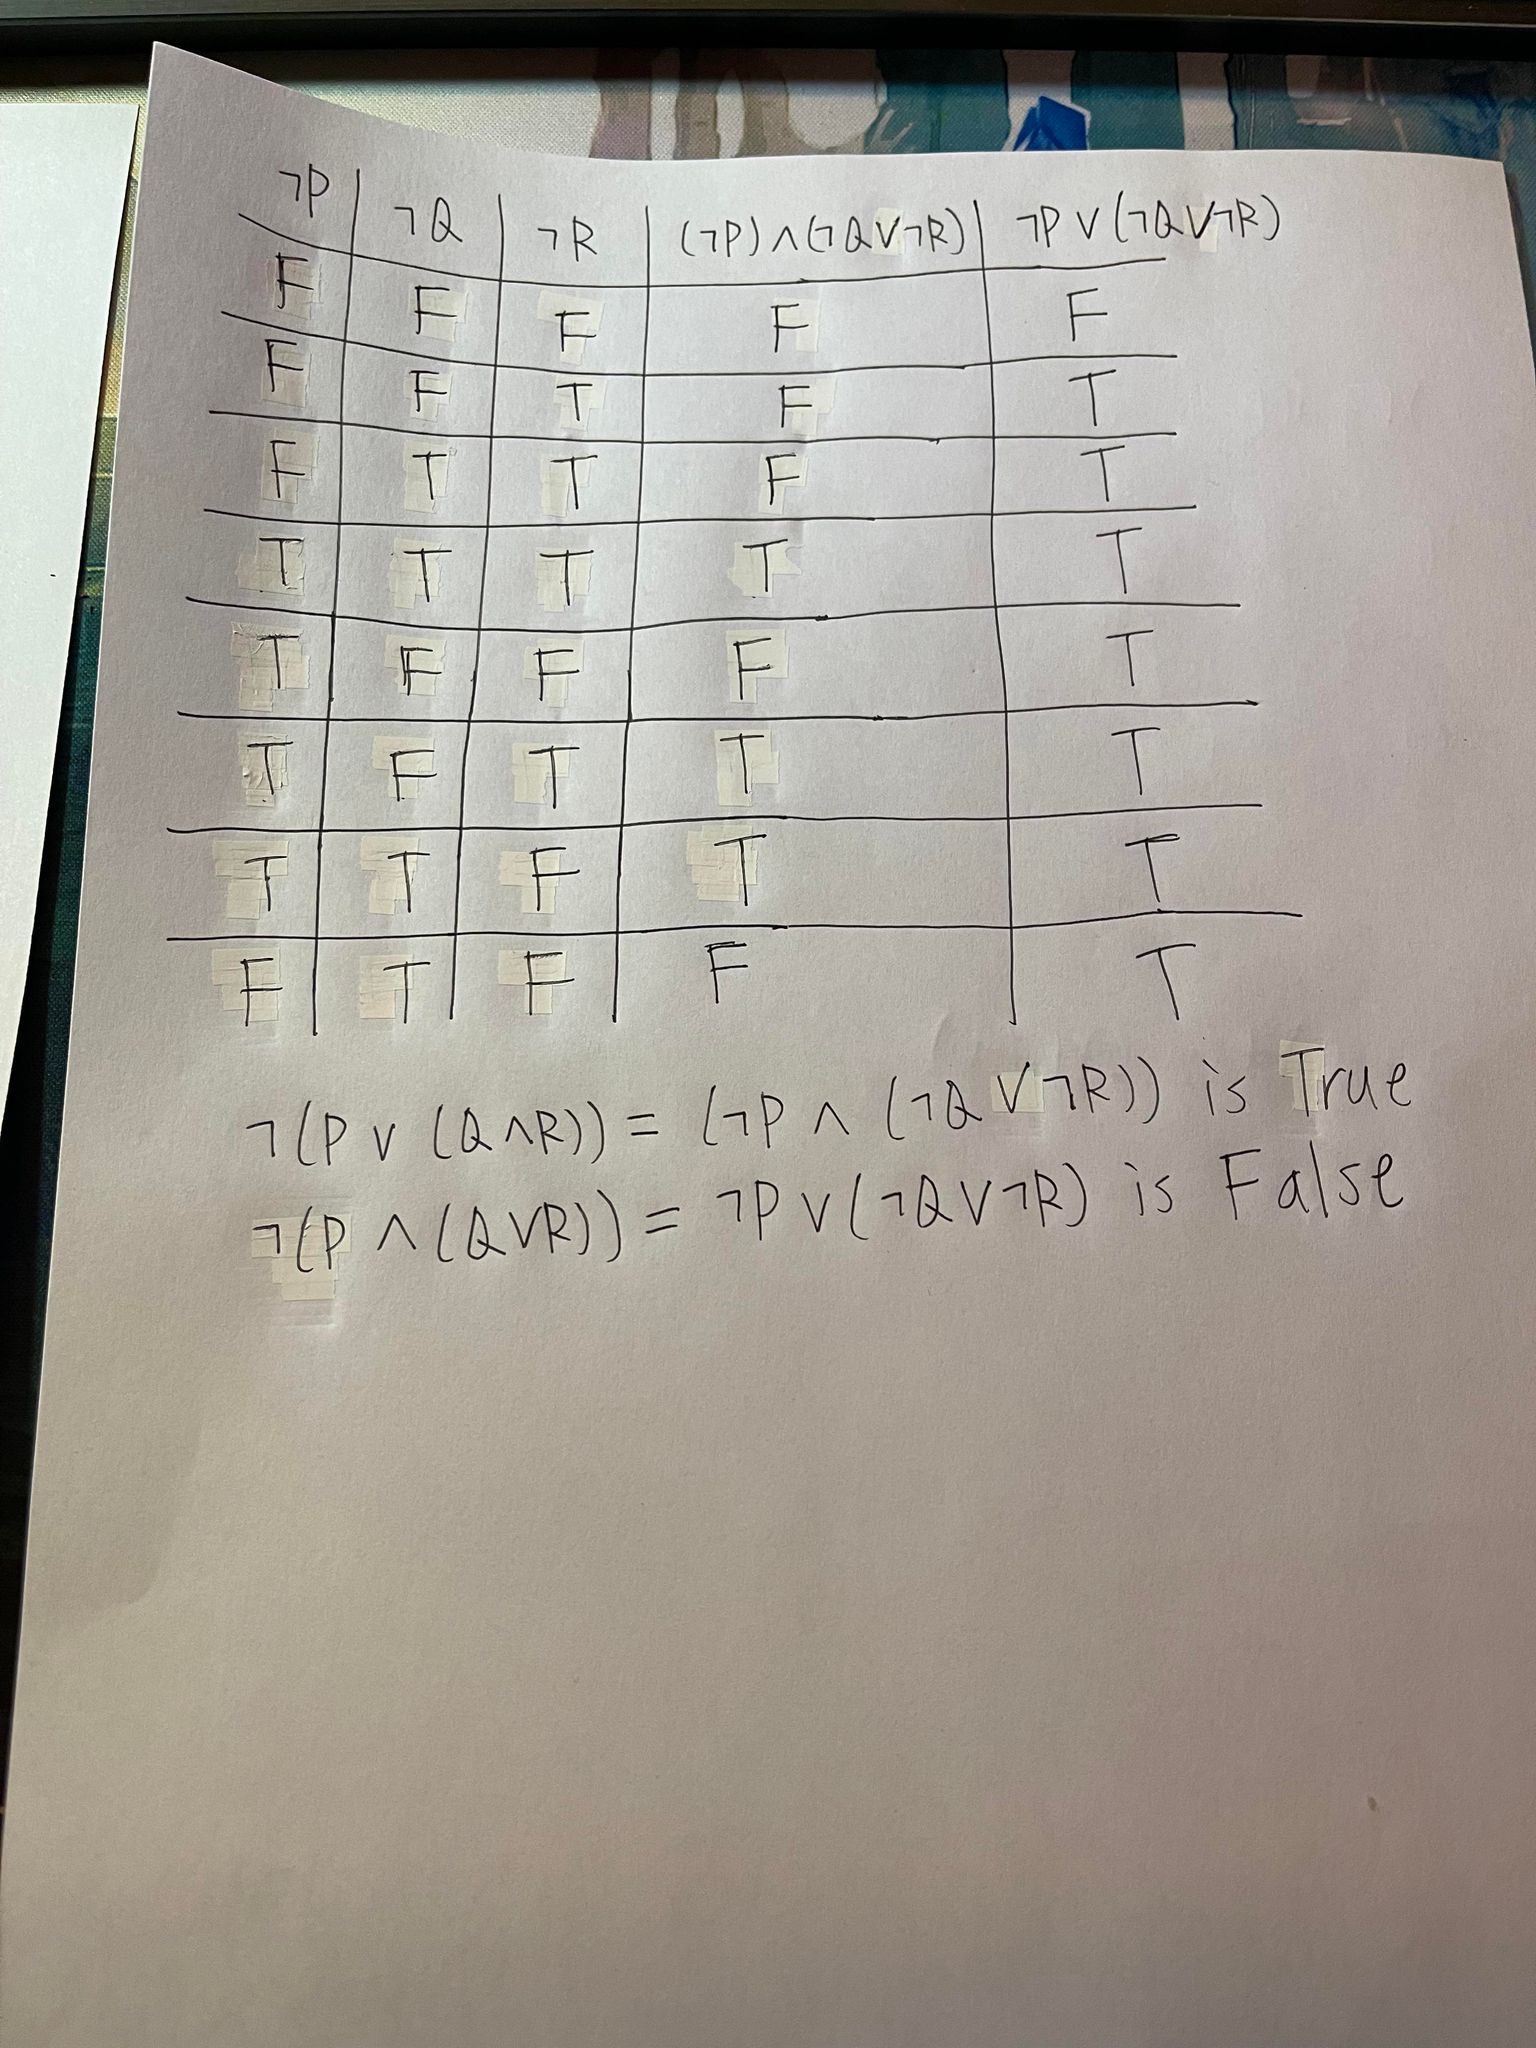 ¬P ¬Q ¬R (¬P)∧(¬Q∨¬R) ¬P∨(¬Q∨¬R)
F F F F F
F F T F T
F T T F T
T T T T T
T F F F T
T F T T T
T T F T T
F T F F T
¬(P∨(Q∧R))=(¬P∧(¬Q∨¬R)) is True
¬(P∧(Q∨R))=¬P∨(¬Q∨¬R) is False